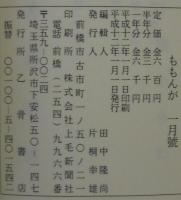 ももんが 一月號
定価 金六百円
半年分 金三千円
一年分 金六千円
平成十二年一月一日印刷
平成十二年一月一日発行
編輯人 田中隆尚
発行人 片桐幸雄
前橋市古市町一ノ五〇ノ二一
印刷所 株式会社上毛新聞社
電話前橋(二五四)九九六六番
〒三五九-〇〇二四
埼玉県所沢市下安松五〇-一四七
発行所 乙骨書店
振替 〇〇一〇〇-五-四〇一五四二